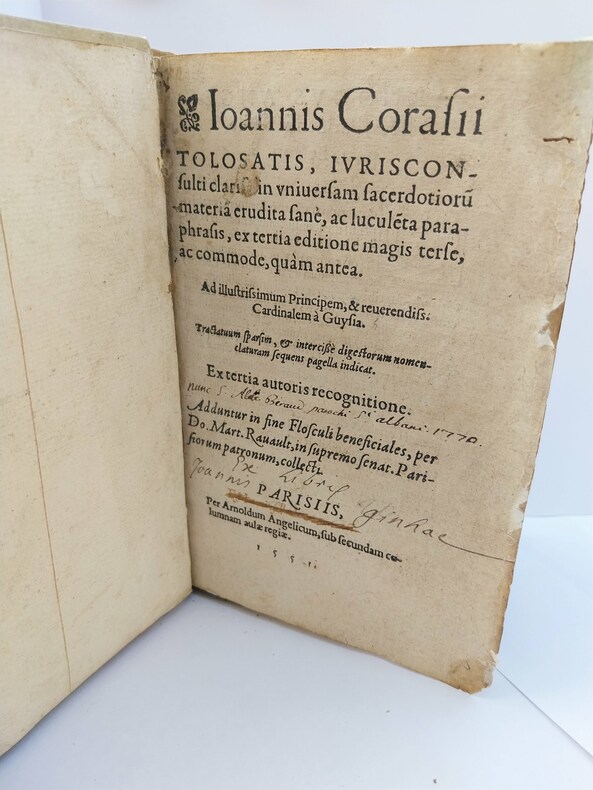 Ioannis Coraſii
TOLOSATIS, IVRISCON-
ſulti clariſſ. in vniuerſam ſacerdotiorũ
materiã erudita ſanè, ac luculẽta para-
phraſis, ex tertia editione magis terſe,
ac commode, quàm antea.
Ad illuſtriſsimum Principem, & reuerendiſs.
Cardinalem à Guyſia.
Tractatuum ſparſim, & interciſè digeſtorum nomen-
claturam ſequens pagella indicat.
Ex tertia autoris recognitione.
nunc parochi Sti albani. 1770.
Adduntur in fine Floſculi beneficiales, per
Do. Mart. Rauault, in ſupremo ſenat. Pari-
ſiorum patronum, collecti.
Ex Libris
Joannis
PARISIIS,
Per Arnoldum Angelicum, ſub ſecundam co-
lumnam aulæ regiæ.